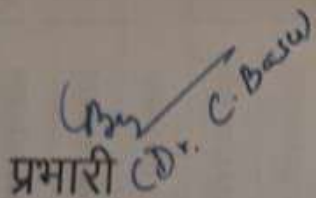 प्रभारी (Dr. C. Basu)